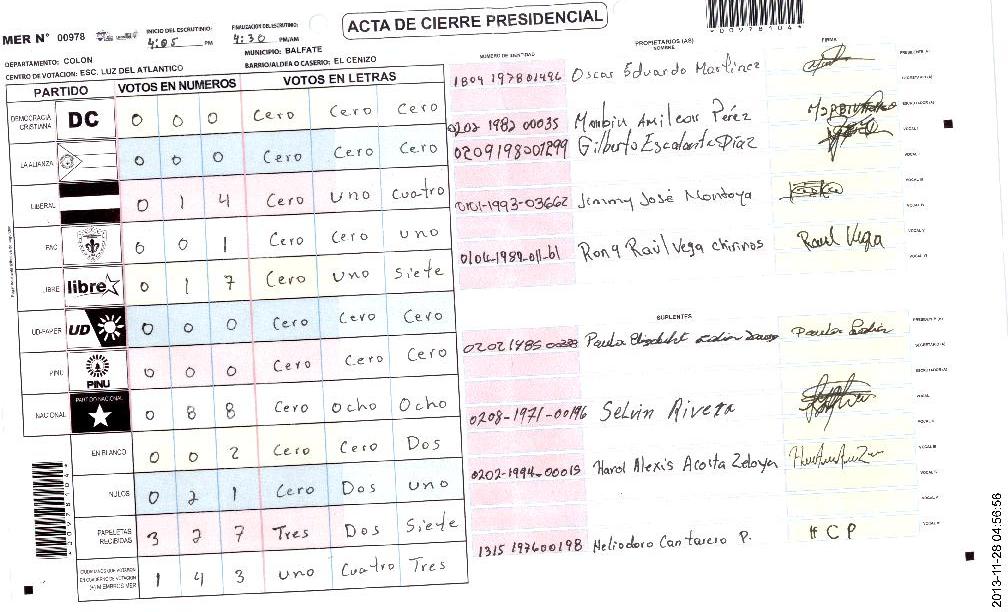 ACTA DE CIERRE PRESIDENCIAL
MER N° 00978
INICIO DEL ESCRUTINIO: 4:05 PM
FINALIZACIÓN DEL ESCRUTINIO: 4:30 PM/AM
DEPARTAMENTO: COLON
MUNICIPIO: BALFATE
CENTRO DE VOTACION: ESC. LUZ DEL ATLANTICO
BARRIO/ALDEA O CASERIO: EL CENIZO
PARTIDO VOTOS EN NUMEROS VOTOS EN LETRAS
DEMOCRACIA CRISTIANA DC 0 0 0 Cero Cero Cero
LA ALIANZA 0 0 0 Cero Cero Cero
LIBERAL 0 1 4 Cero Uno Cuatro
PAC 0 0 1 Cero Cero uno
LIBRE libre 0 1 7 Cero Uno Siete
UD-FAPER UD 0 0 0 Cero Cero Cero
PINU PINU 0 0 0 Cero Cero Cero
NACIONAL PARTIDO NACIONAL 0 8 8 Cero Ocho Ocho
EN BLANCO 0 0 2 Cero Cero Dos
NULOS 0 2 1 Cero Dos uno
PAPELETAS RECIBIDAS 3 2 7 Tres Dos Siete
CIUDADANOS QUE VOTARON EN CUADERNO DE VOTACION (+) MIEMBROS MER 1 4 3 uno Cuatro Tres
NUMERO DE IDENTIDAD PROPIETARIOS (AS) NOMBRE FIRMA
1804 197801496 Oscar Eduardo Martinez
0202 1982 00035 Amilcar Pérez
0209198001299 Gilberto Escalante Díaz
0101-1993-03662 Jimmy José Montoya
Rony Raúl Vega chirinos Raul Vega
SUPLENTES
Paula
0208-1971-00196 Selvin Rivera
0202-1994-00019 Harol Alexis Acosta Zelaya
1315 197600198 Heliodoro Cantarero P. H C P
*00978104*
2013-11-28 04:56:56